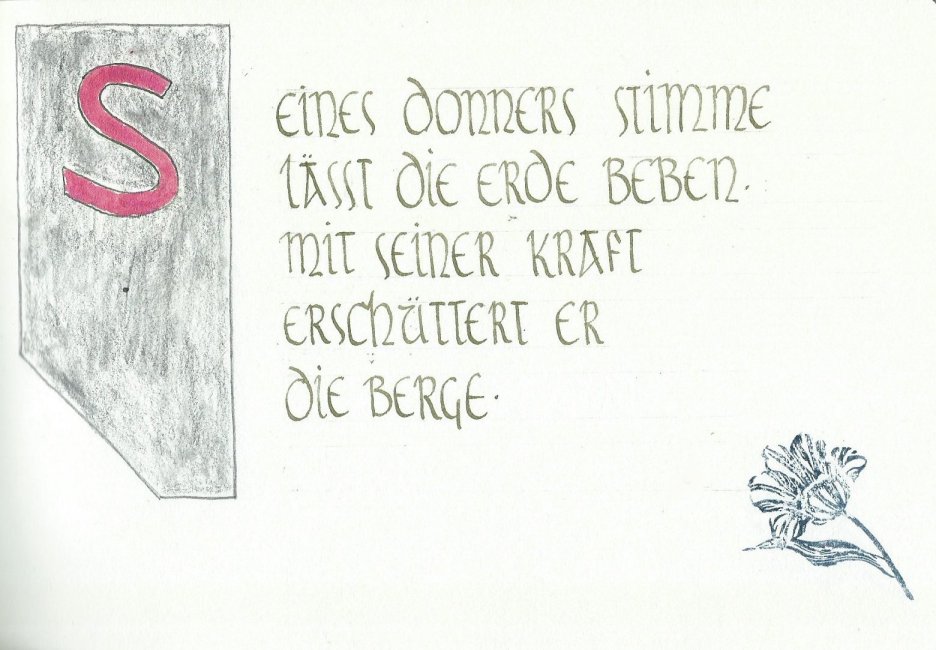 SEINES DONNERS STIMME
LÄSST DIE ERDE BEBEN.
MIT SEINER KRAFT
ERSCHÜTTERT ER
DIE BERGE.